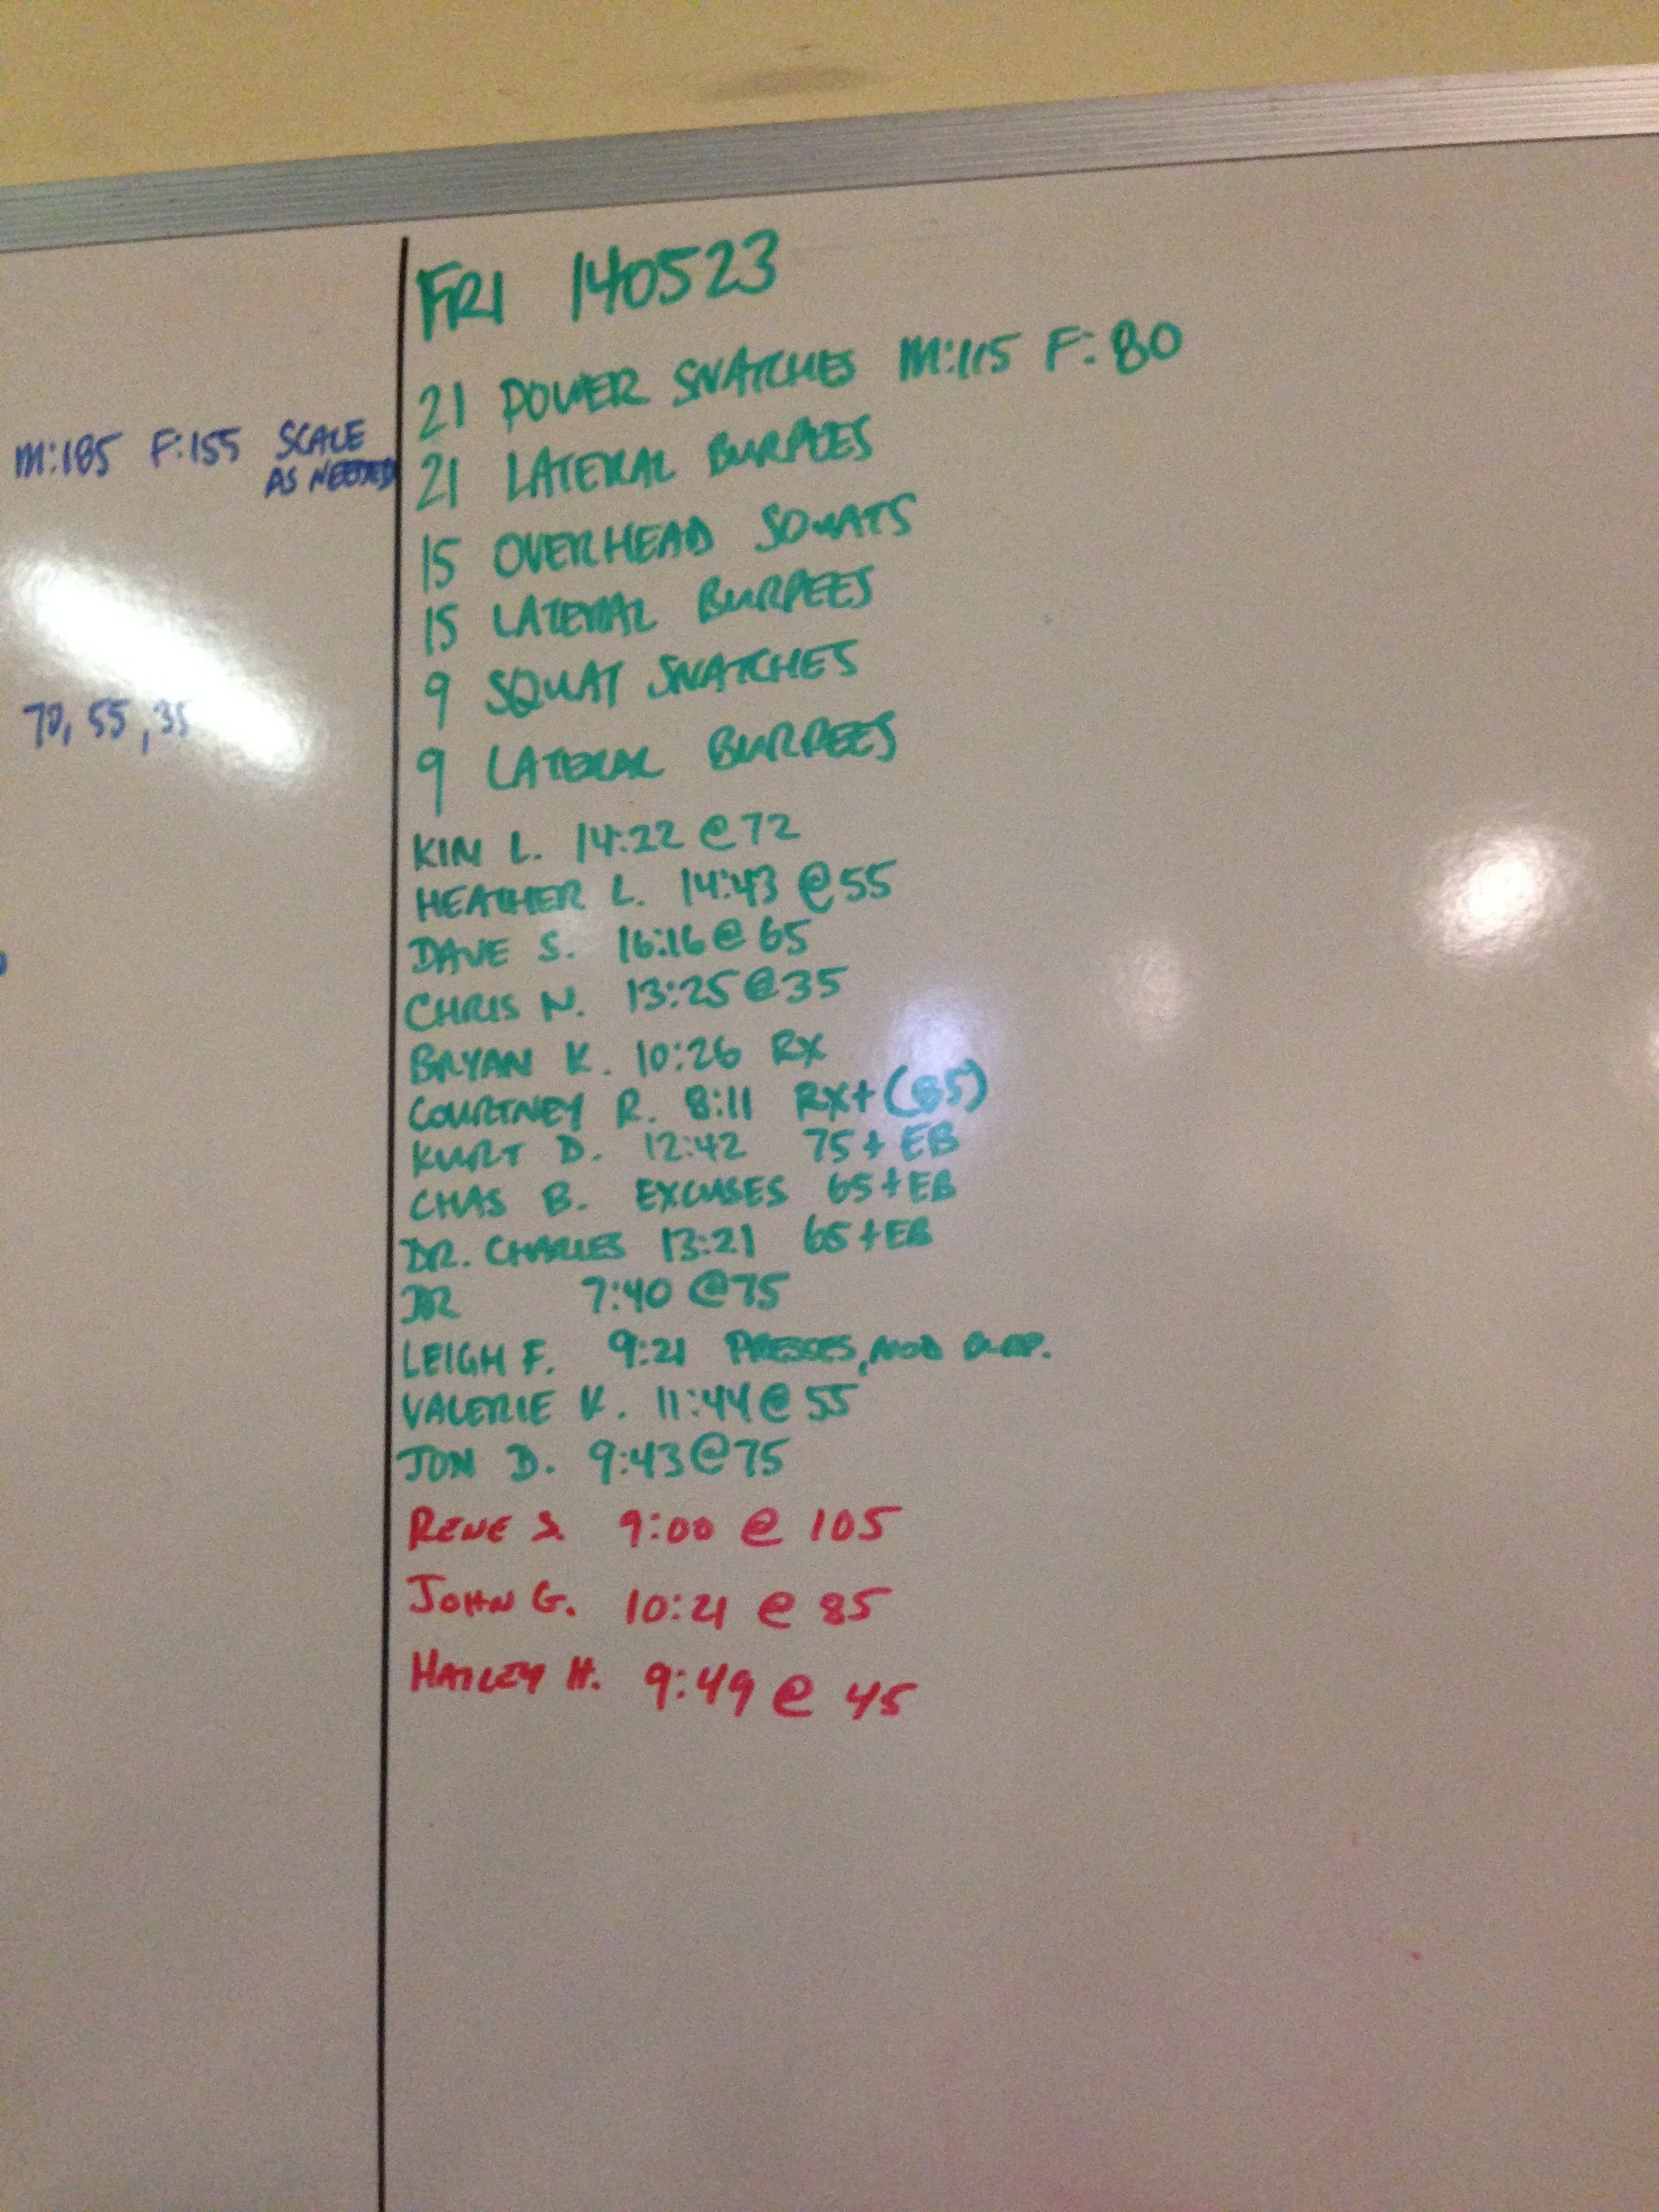 M:185 F:155 SCALE
AS NEEDED
70, 55, 35
FRI 140523
21 POWER SNATCHES M:115 F:80
21 LATERAL BURPEES
15 OVERHEAD SQUATS
15 LATERAL BURPEES
9 SQUAT SNATCHES
9 LATERAL BURPEES
KIM L. 14:22 @ 72
HEATHER L. 14:43 @ 55
DAVE S. 16:16 @ 65
CHRIS N. 13:25 @ 35
BRYAN K. 10:26 RX
COURTNEY R. 8:11 RX+ (85)
KURT D. 12:42 75 + EB
CHAS B. EXCUSES 65 + EB
DR. CHARLES 13:21 65 + EB
7:40 @ 75
LEIGH F. 9:21 PRESSES, MOD BURP.
VALERIE K. 11:44 @ 55
JON D. 9:43 @ 75
RENE S. 9:00 @ 105
JOHN G. 10:21 @ 85
HAILEY H. 9:49 @ 45